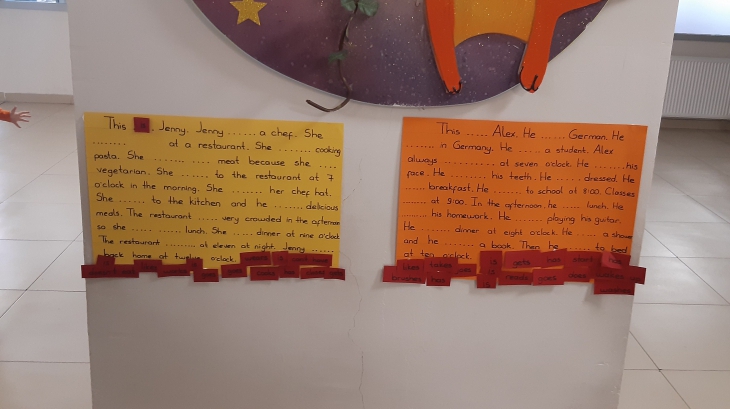 This is . Jenny. Jenny ...... a chef. She
........ at a restaurant. She ........ cooking
pasta. She ........ meat because she ....
vegetarian. She ...... to the restaurant at 7
o'clock in the morning. She ....... her chef hat.
She ..... to the kitchen and he ........ delicious
meals. The restaurant ...... very crowded in the afternoon
so she ...... lunch. She ..... dinner at nine o'clock
The restaurant ......... at eleven at night. Jenny ......
back home at twelve o'clock.
This ..... Alex. He ...... German. He
....... in Germany. He .... a student. Alex
always ......... at seven o'clock. He ...... his
face. He ....... his teeth. He ...... dressed. He
...... breakfast. He ...... to school at 8:00. Classes
....... at 9:00. In the afternoon. he .... lunch. He
...... his homework. He ...... playing his guitar.
He ...... dinner at eight o'clock. He ..... a shower
and he ...... a book. Then he ...... to bed
at ten o'clock.
likes takes is gets has start has
brushes has is reads goes does
washes